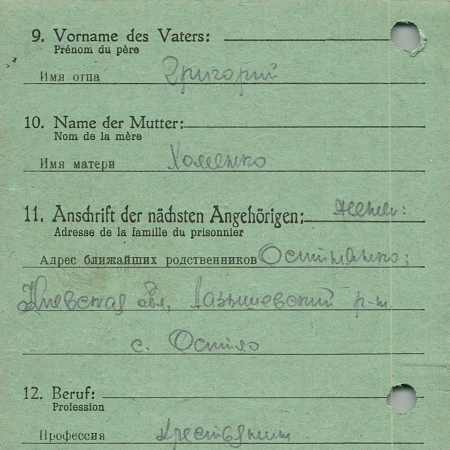 9. Vorname des Vaters:
Prénom du père
Имя отца Григорий
10. Name der Mutter:
Nom de la mère
Имя матери Хоменко
11. Anschrift der nächsten Angehörigen:
Adresse de la famille du prisonnier
Адрес ближайших родственников
Киевская обл, р-н
с.
12. Beruf:
Profession
Профессия крестьянин